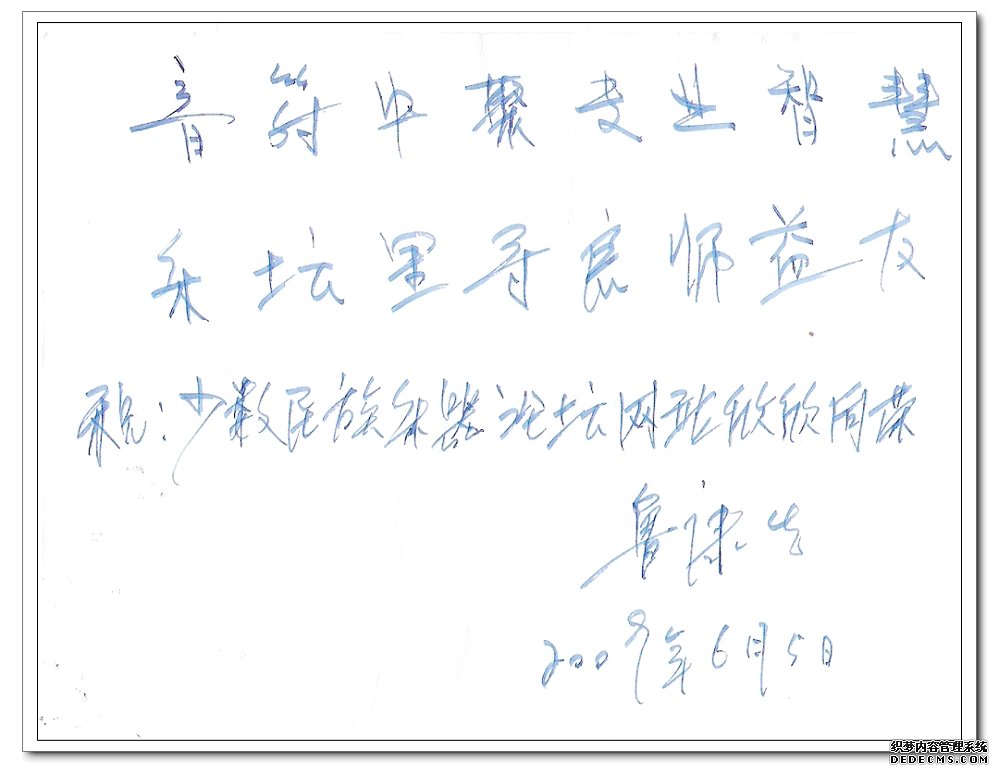 音符中聚专业智慧
乐坛里寻良师益友
祝:少数民族乐器论坛网站欣欣向荣
鲁康生
2009年6月5日
织梦内容管理系统
DEDECMS.COM